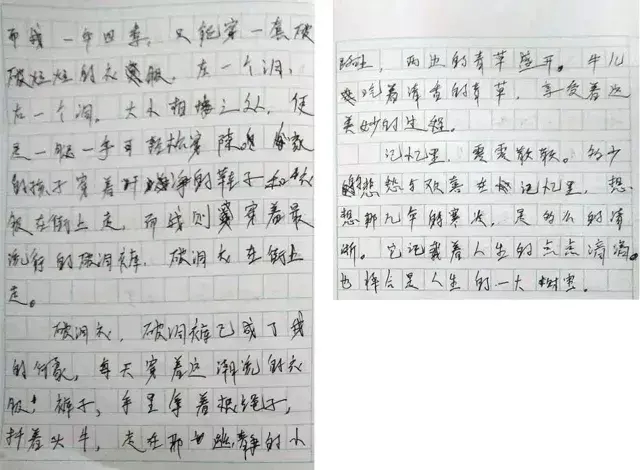 而我一年四季，只能穿一套破
破烂烂的衣服。左一个洞，
右一个洞。大小相插之处，便
是一脚一手可轻松穿 别家
的孩子穿着干净的鞋子和衣
服在街上走，而我则穿着最
流行的破洞裤，破洞衣在街上
走。
破洞衣，破洞裤已成了我
的行头，每天穿着这潮流的衣
服，裤子，手里牵着根绳子，
拌着头牛，走在那幽静的小
路上，两边的青草盛开。牛儿
吃着清香的青草，享受着这
美妙的过程。
记忆里，零零散散。多少
愁怨与欢喜在记忆里，想
想那几年的寒冷，是的么的清
晰。它记载着人生的点点滴滴。
也释会是人生的一大财宝。